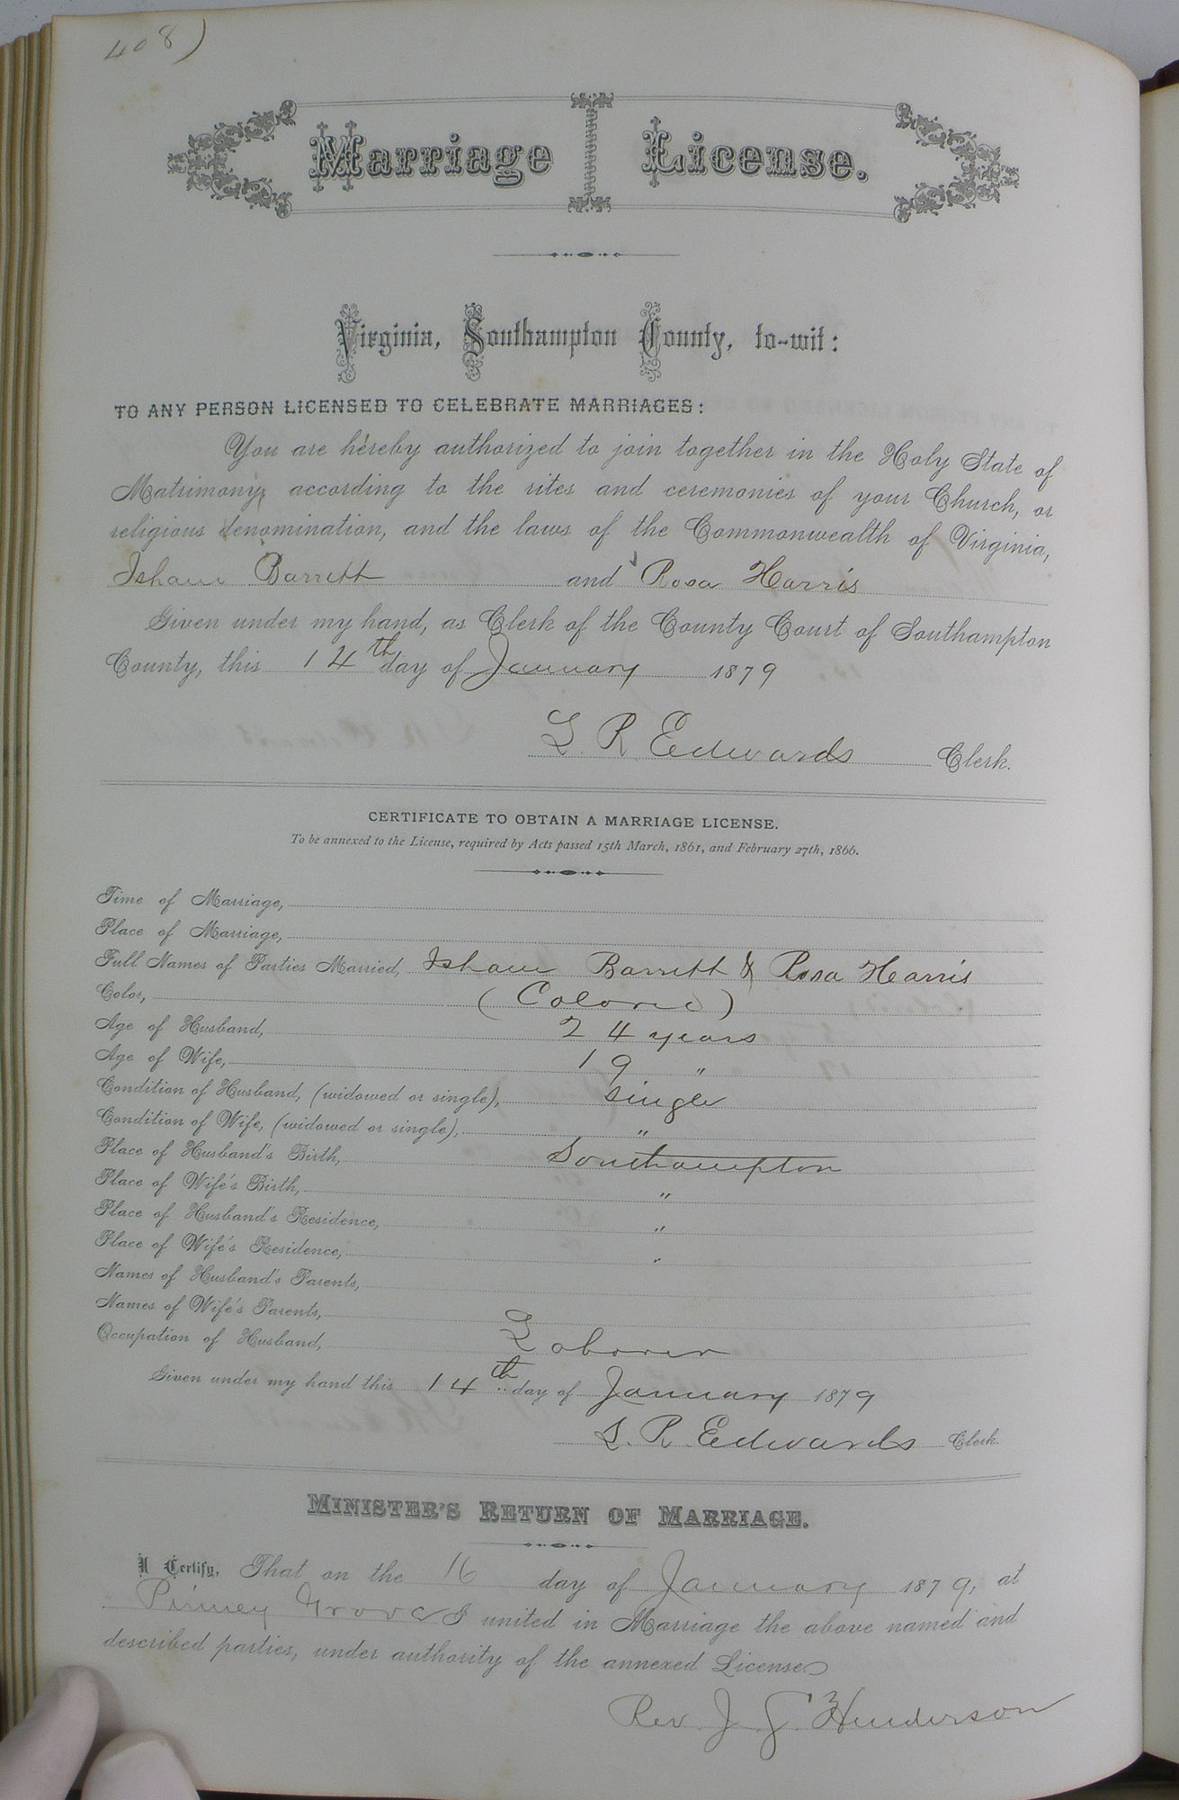 408)
Marriage License.
Virginia, Southampton County, to-wit:
TO ANY PERSON LICENSED TO CELEBRATE MARRIAGES:
You are hereby authorized to join together in the Holy State of
Matrimony, according to the rites and ceremonies of your Church, or
religious denomination, and the laws of the Commonwealth of Virginia,
Isham Barrett and Rosa Harris
Given under my hand, as Clerk of the County Court of Southampton
County, this 14th day of January 1879
L R Edwards Clerk.
CERTIFICATE TO OBTAIN A MARRIAGE LICENSE.
To be annexed to the License, required by Acts passed 15th March, 1861, and February 27th, 1866.
Time of Marriage,
Place of Marriage,
Full Names of Parties Married, Isham Barrett & Rosa Harris
Color, (Colored)
Age of Husband, 24 years
Age of Wife, 19 "
Condition of Husband, (widowed or single), Single
Condition of Wife, (widowed or single), "
Place of Husband's Birth, Southampton
Place of Wife's Birth, "
Place of Husband's Residence, "
Place of Wife's Residence, "
Names of Husband's Parents,
Names of Wife's Parents,
Occupation of Husband, Laborer
Given under my hand this 14th day of January 1879
L. R. Edwards Clerk.
MINISTER'S RETURN OF MARRIAGE.
I Certify, That on the 16 day of January 1879, at
Pinney Grove I united in Marriage the above named and
described parties, under authority of the annexed License
Rev. J. G. Henderson